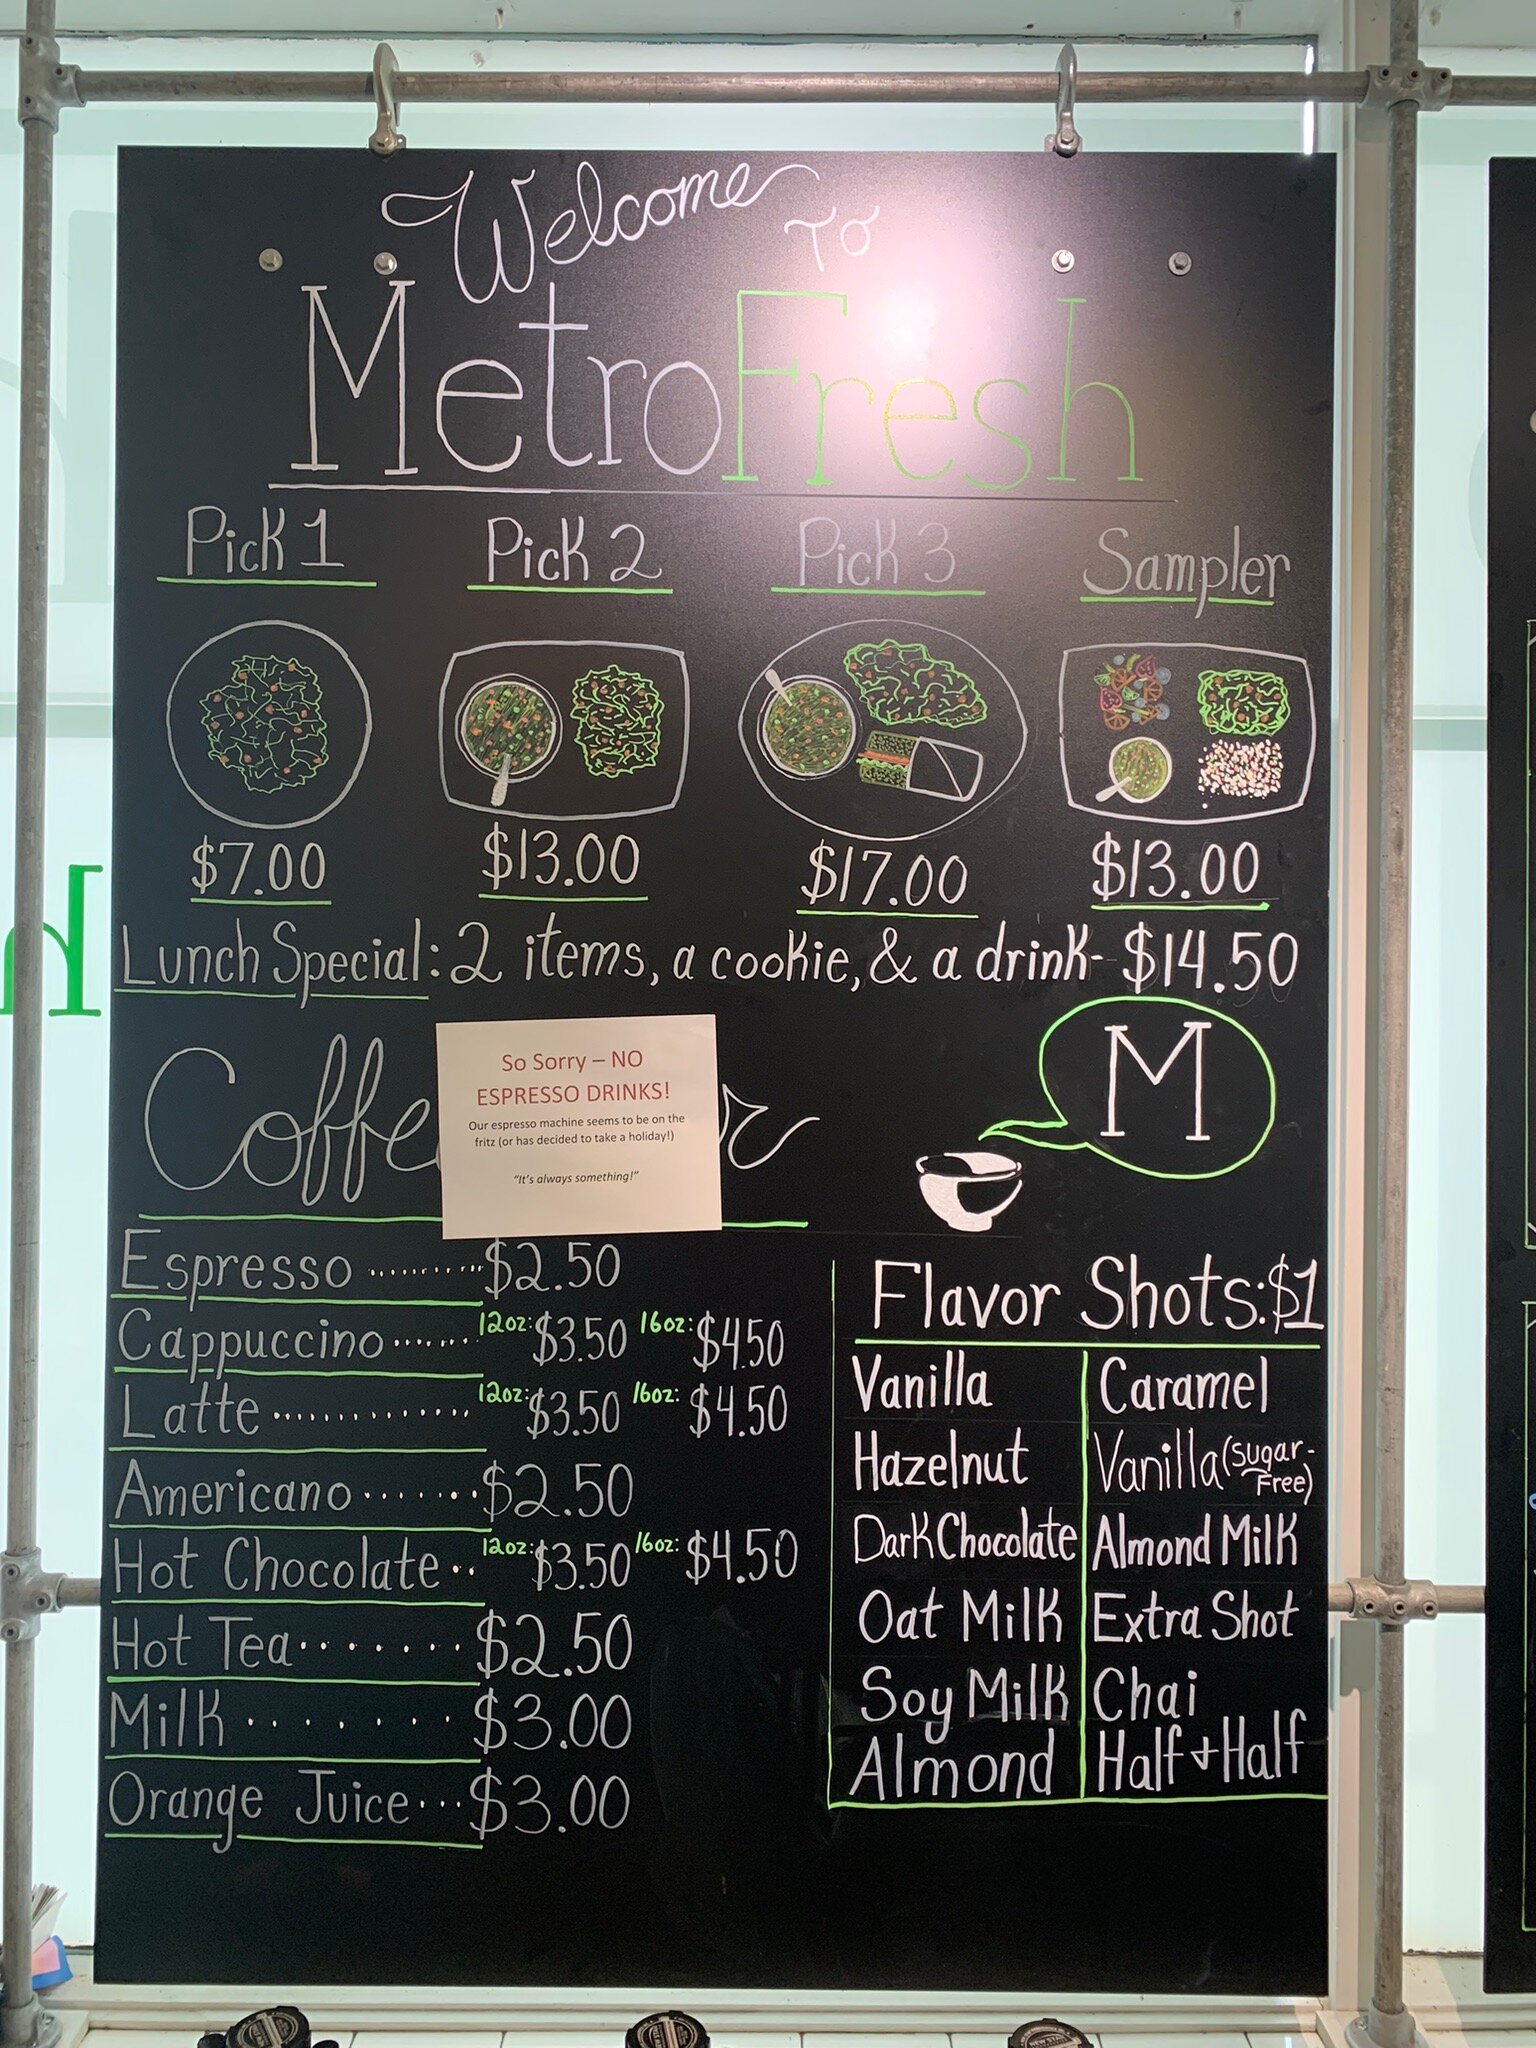 Welcome To
MetroFresh
Pick 1 Pick 2 Pick 3 Sampler
$7.00 $13.00 $17.00 $13.00
Lunch Special: 2 items, a cookie, & a drink- $14.50
Coffee
So Sorry – NO
ESPRESSO DRINKS!
Our espresso machine seems to be on the
fritz (or has decided to take a holiday!)
"It's always something!"
M
Espresso ........... $2.50
Cappuccino ....... 12oz: $3.50 16oz: $4.50
Latte ............. 12oz: $3.50 16oz: $4.50
Americano ....... $2.50
Hot Chocolate .. 12oz: $3.50 16oz: $4.50
Hot Tea ....... $2.50
Milk ....... $3.00
Orange Juice ... $3.00
Flavor Shots: $1
Vanilla Caramel
Hazelnut Vanilla (Sugar-
Free)
Dark Chocolate Almond Milk
Oat Milk Extra Shot
Soy Milk Chai
Almond Half + Half